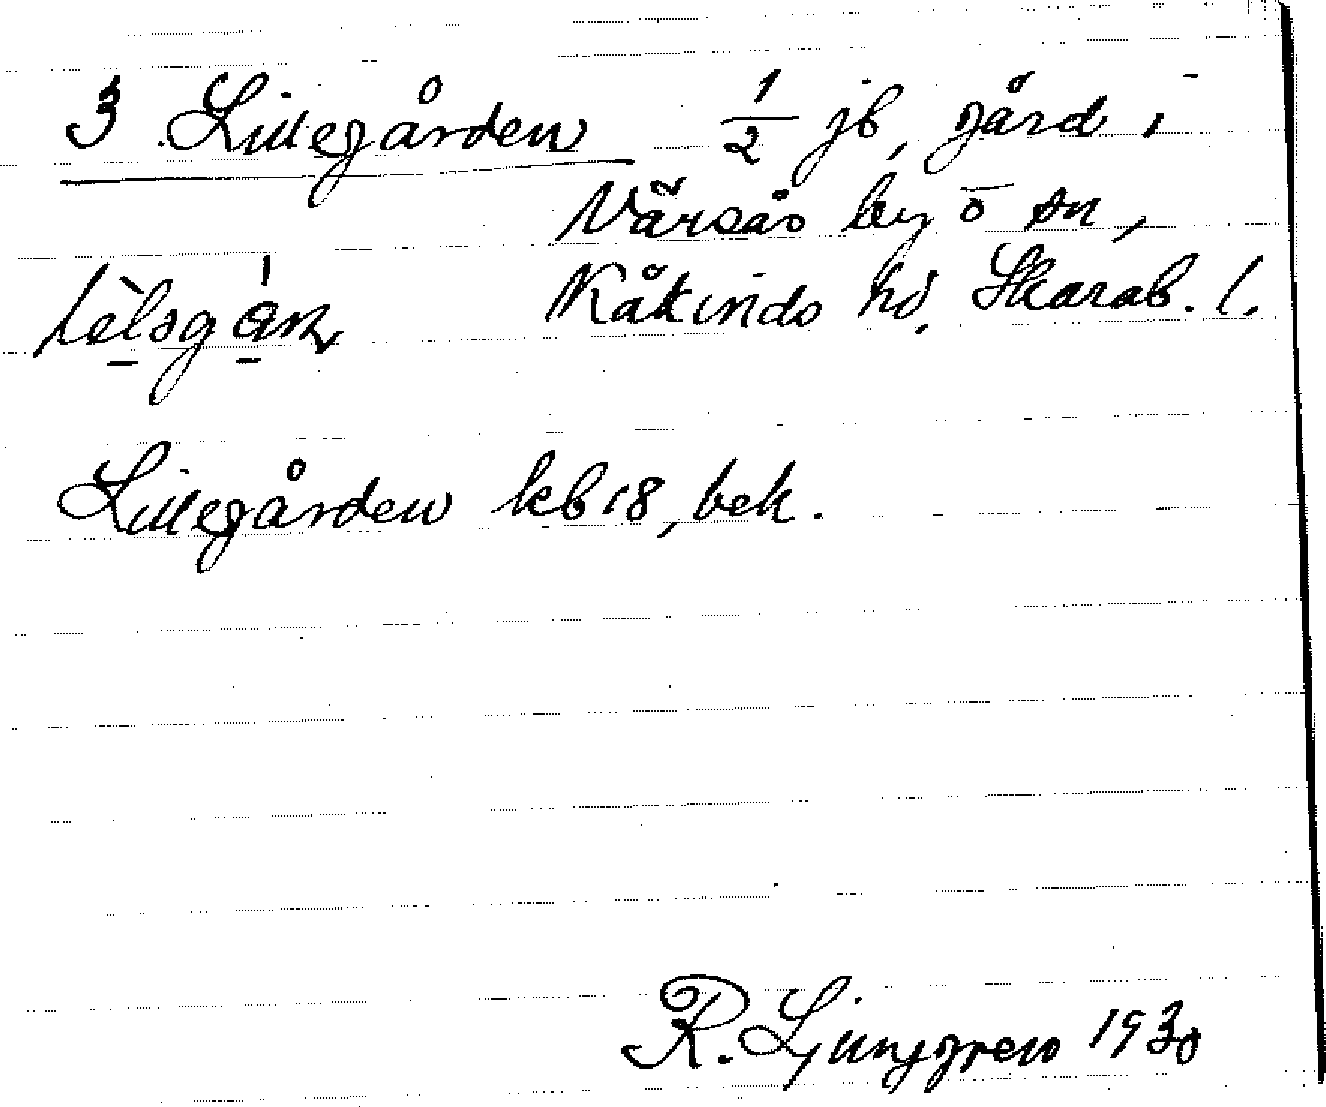 3 Lillegården 1/2 jb, gård i
Värsås by o sn,
Kåkinds hd. Skarab. l.
Lillegården kb 18, bek.
R. Ljunggren 1930